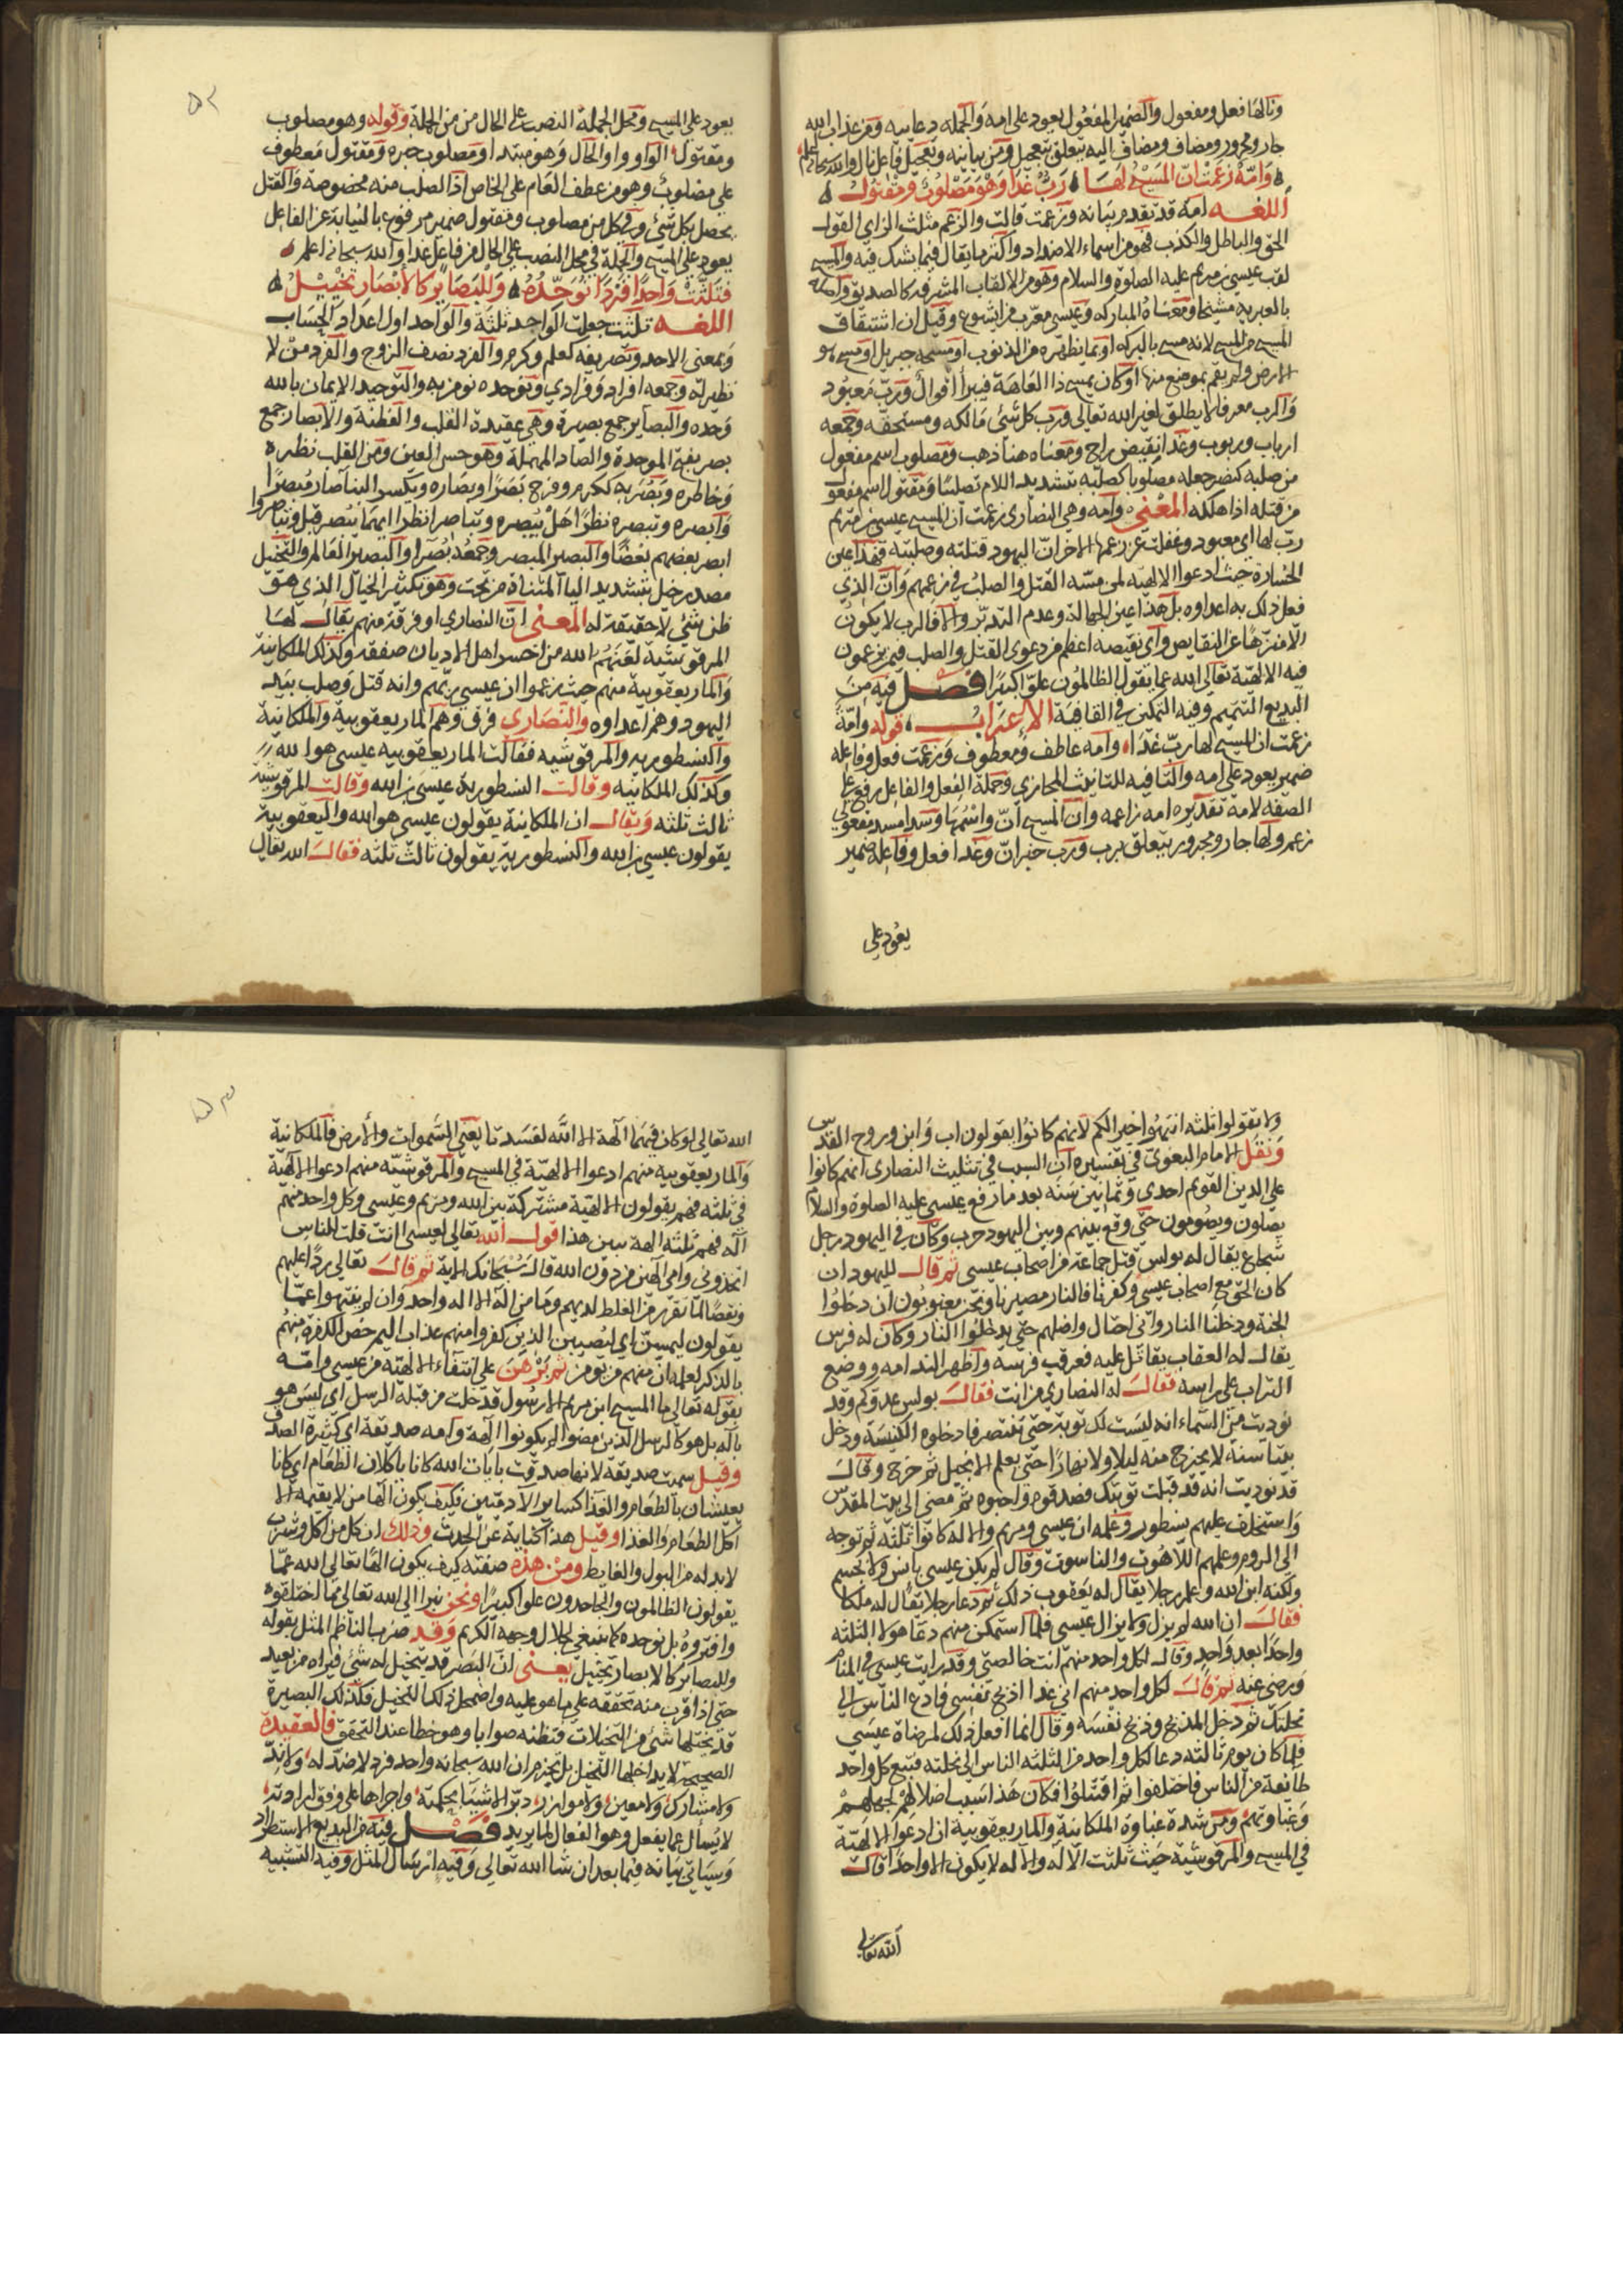 ونالها فعل ومفعول والضمير المفعول يعود على امه والجمله دعاييه ومن عذاب الله
جار ومجرور ومضاف ومضاف اليه يتعلق بتعجيل ومن بيانيه وتعجيل فاعل نال والله سبحانه اعلم
وَامّةٌ زَعَمَتْ انّ المَسيْحَ لهَا رَبٌّ غَدَا وَهْوَ مَصْلُوْبٌ وَمَقْتُوْلُ
اللغــه امة قد تقدم بيانه وزعمت قالت والزعم مثلث الزاي القول
الحق والباطل والكذب فهو من اسماء الاضداد واكثر ما يقال فيما يشك فيه والمسيح
لقب عيسى بن مريم عليه الصلوة والسلام وهو من الالقاب المشرفه كالصديق واصله
بالعبريه مشيحا ومعناه المبارك وعيسى معرب من ايشوع وقيل ان اشتقاق
المسيح من المسح لانه مسح بالبركه او بما يطهره من الذنوب او مسحه جبريل او مسح
الارض ولم يقم بموضع منها او كان يمسح ذا العاهة فيبرأ اقوال ورب معبود
والرب معرفا لا يطلق لغير الله تعالى ورب كل شئ مالكه ومستحقه وجمعه
ارباب وربوب وغدا نقيض راح ومعناه هنا ذهب ومصلوب اسم مفعول
من صلبه كنصر جعله مصلوبا كصلبه بتشديد اللام تصليبا ومقتول اسم مفعول
من قتله اذا هلكه المعْنى وامه وهي النصارى زعمت ان المسيح عيسى بن مريم
رب لها اي معبود وغفلت عن زعمها الاخر ان اليهود قتلته وصلبته فهذا عين
الخساره حيث ادعوا الالهيه لمن مسّه القتل والصلب في زعمهم وان الذي
فعل ذلك به اعداوه بل هذا عين الجهالة وعدم التدبر والا فالرب لا يكون
الا منزها عن النقايص واي نقيصه اعظم من دعوى القتل والصلب فيمن يزعمون
فيه الالهيّة تعالى الله عما يقول الظالمون علوّا كبيرًا فصـــل فيه من
البديع التتميم وفيه التمكن في القافية الاعراب قوله وامّة
زعمت ان المسيح لها رب غدا وامه عاطف ومعطوف وزعمت فعل وفاعله
ضمير يعود على امه والتا فيه للتانيث المجازي وجملة الفعل والفاعل رفع على
الصفه لامة تقديره امه زاعمه وان المسيح ان واسمها وسدا مسد مفعولي
زعم ولها جار ومجرور يتعلق برب ورب خبر ان وغدا فعل وفاعله ضمير
يعود على
٥٢
يعود على المسيح ومحل الجملة النصب على الحال من الجملة وقوله وهو مصلوب
ومقتول الواو واو الحال وهو مبتدا ومصلوب خبره ومقتول معطوف
على مصلوب وهو من عطف العام على الخاص اذا الصلب منه مخصوصة والقتل
يحصل بكل شئ وفي كل من مصلوب ومقتول ضمير مرفوع بالنيابة عن الفاعل
يعود على المسيح والجملة في محل النصب على الحال من فاعل غدا والله سبحانه اعلم
فَثَلَّثَتْ وَاحِدًا فَرْدًا نُوَحِّدُهُ وَلِلْبَصَايِرِ كالأبْصَارِ تَخْيِيْلُ
اللغــه ثلثت جعلت الواحد ثلثة والواحد اول اعداد الحساب
وبمعنى الاحد وتصريفه كعلم وكرم والفرد نصف الزوج والفرد من لا
نظير له وجمعه افراد وفرادي ونوحده نومن به والتوحيد الايمان بالله
وحده والبصاير جمع بصيرة وهي عقيدة القلب والفطنة والابصار جمع
بصر بفتح الموحدة والصاد المهملة وهو حس العين ومن القلب نظره
وخاطره وبصر به ككرم وفرح بصرا وبصاره ويكسر البنا صار مبصرا
وابصره وتبصره نظرا هل يبصره وتباصرا نظرا ايهما يبصر قبل وتباصروا
ابصر بعضهم بعضًا والبصير المبصر وجمعه بُصَرا والبصير العالم والتخييل
مصدر خيل بتشديد اليا المثناة من تحت وهو تكثير الخيال الذي هو
ظن شئ لا حقيقة له المعنى ان النصارى او فرقة منهم يقال لها
المرقوسية لعنهم الله من اخسر اهل الاديان صفقه وكذلك الملكانية
والمار يعقوبية منهم حيث زعموا ان عيسى بن مريم وانه قتل وصلب بيد
اليهود وهم اعداوه والنصاري فرق وهم المار يعقوبية والملكانية
والنسطوريه والمرقوسيه فقالت المار يعقوبيه عيسى هو الله
وكذلك الملكانيه وقالت النسطورية عيسى بن الله وقالت المرقوسية
ثالث ثلثه ويقال ان الملكانية يقولون عيسى هو الله واليعقوبية
يقولون عيسى بن الله والنسطورية يقولون ثالث ثلثه فقال الله تعالى
ولا تقولوا ثلثه انتهوا خيرا لكم لانهم كانوا يقولون اب وابن وروح القدس
ونقل الامام البغوي في تفسيره ان السبب في تثليث النصارى انهم كانوا
على الدين القويم احدي وثمانين سنه بعد ما رفع عيسى عليه الصلوة والسلام
يصلون ويصومون حتى وقع بينهم وبين اليهود حرب وكان في اليهود رجل
شجاع يقال له بولس قتل جماعة من اصحاب عيسى ثم قال لليهود ان
كان الحق مع اصحاب عيسى وكفرنا فالنار مصيرنا ونحن مغبونون ان دخلوا
الجنة ودخلنا النار واني احتال واضلهم حتى يدخلوا النار وكان له فرس
يقال له العقاب يقاتل عليه فعرقب فرسه واظهر الندامه ووضع
التراب على راسه فقال له النصارى من انت فقال بولس عدوكم وقد
نوديت من السماء انه ليست لك توبة حتى تتنصر فادخلوه الكنيسة ودخل
بيتا سنة لا يخرج منه ليلا ولا نهارًا حتى يعلم الانجيل ثم خرج وقال
قد نوديت انه قد قبلت توبتك فصدقوه واحبوه ثم مضى الى بيت المقدس
واستخلف عليهم نسطور وعلمه ان عيسى ومريم والاله كانوا ثلثه ثم توجه
الى الروم وعلمهم اللاهوت والناسوت وقال لم يكن عيسى بانس ولا بجسم
ولكنه ابن الله وعلم رجلا يقال له يعقوب ذلك ثم دعا رجلا يقال له ملكا
فقال ان الله لم يزل ولا يزال عيسى فلما استمكن منهم دعا هولا الثلثه
واحدًا بعد واحد وقال لكل واحد منهم انت خالصتي وقد رايت عيسى في المنام
ورضى عنه ثم قال لكل واحد منهم اني غدا اذبح نفسي فادع الناس الى
نحلتك ثم دخل المذبح وذبح نفسه وقال انما افعل ذلك لمرضاة عيسى
فلما كان يوم ثالثه دعا كل واحد من الثلثه الناس الى نحلته فتبع كل واحد
طائفة من الناس فاختلفوا ثم اقتتلوا فكان هذا سبب اضلالهم لجهلهم
وغباوتهم ومن شدة غباوة الملكانية والمار يعقوبية ان ادعوا الالهيّة
في المسيح والمرقوسية حيث ثلثت الاله والاله لا يكون الا واحدا قال
الله تعالى
الله تعالى لو كان فيهما الهة الا الله لفسدتا يعني السموات والارض فالملكانية
والمار يعقوبيه منهم ادعوا الالهيّة في المسيح والمرقوسيّه منهم ادعوا الالهية
في ثلثه فهم يقولون الالهية مشتركة بين الله ومريم وعيسى وكل واحد منهم
اله فهم ثلثه الهة يبين هذا قول الله تعالى لعيسى اانت قلت للناس
اتخذوني وامي الهين من دون الله قال سبحانك الاية ثم قال تعالى ردا عليهم
ونقضًا لما تقرر من الغلط لديهم وما من اله الا اله واحد وان لم ينتهوا عما
يقولون ليمسن اي ليصيبن الذين كفروا منهم عذاب اليم خص الكفرة منهم
بالذكر لعلمه ان منهم من يومن ثم برهن على انتفاء الالهيّة من عيسى وامّــه
بقوله تعالى ما المسيح ابن مريم الا رسول قد خلت من قبله الرسل اي ليس هو
باله بل هو كالرسل الذين مضوا لم يكونوا الهة وامه صديقة اي كثيرة الصدق
وقيل سميت صديقة لانها صدقت بايات الله كانا ياكلان الطعام اي كانا
يعيشان بالطعام والغذا كساير الادميين فكيف يكون الها من لا يقيمه الا
اكل الطعام والغذا وقيل هذا كناية عن الحدث وذلك ان كل من اكل وشرب
لا بد له من البول والغايط ومن هذه صفته كيف يكون الها تعالى الله عمّا
يقولون الظالمون والجاحدون علوا كبيرًا ونحن نبرا الى الله تعالى مما اختلقوه
وافتروه بل نوحده كما ينبغي لجلال وجهه الكريم وقد ضرب الناظم المثل بقوله
وللبصاير كالابصار تخييل يعنى ان البصر قد يتخيل له شئ فيراه من بعيد
حتى اذا قرب منه تحققه على ما هو عليه واضمحل ذلك التخييل فكذلك البصيرة
قد يتخيلها شئ من التخيلات فتظنه صوابا وهو خطا عند التحقق فالعقيدة
الصحيحة لا يداخلها التخيل بل تجزم ان الله سبحانه واحد فرد لا ضد له ولا ند
ولا مشارك ولا معين ولا موازر دبّر الاشيا بحكمته واجراها على وفق ارادته
لا يسأل عما يفعل وهو الفعال لما يريد فصــل فيه من البديع الاستطراد
وسياتي بيانه فيما بعد ان شا الله تعالى وفيه ارسال المثل وفيه التشبيه